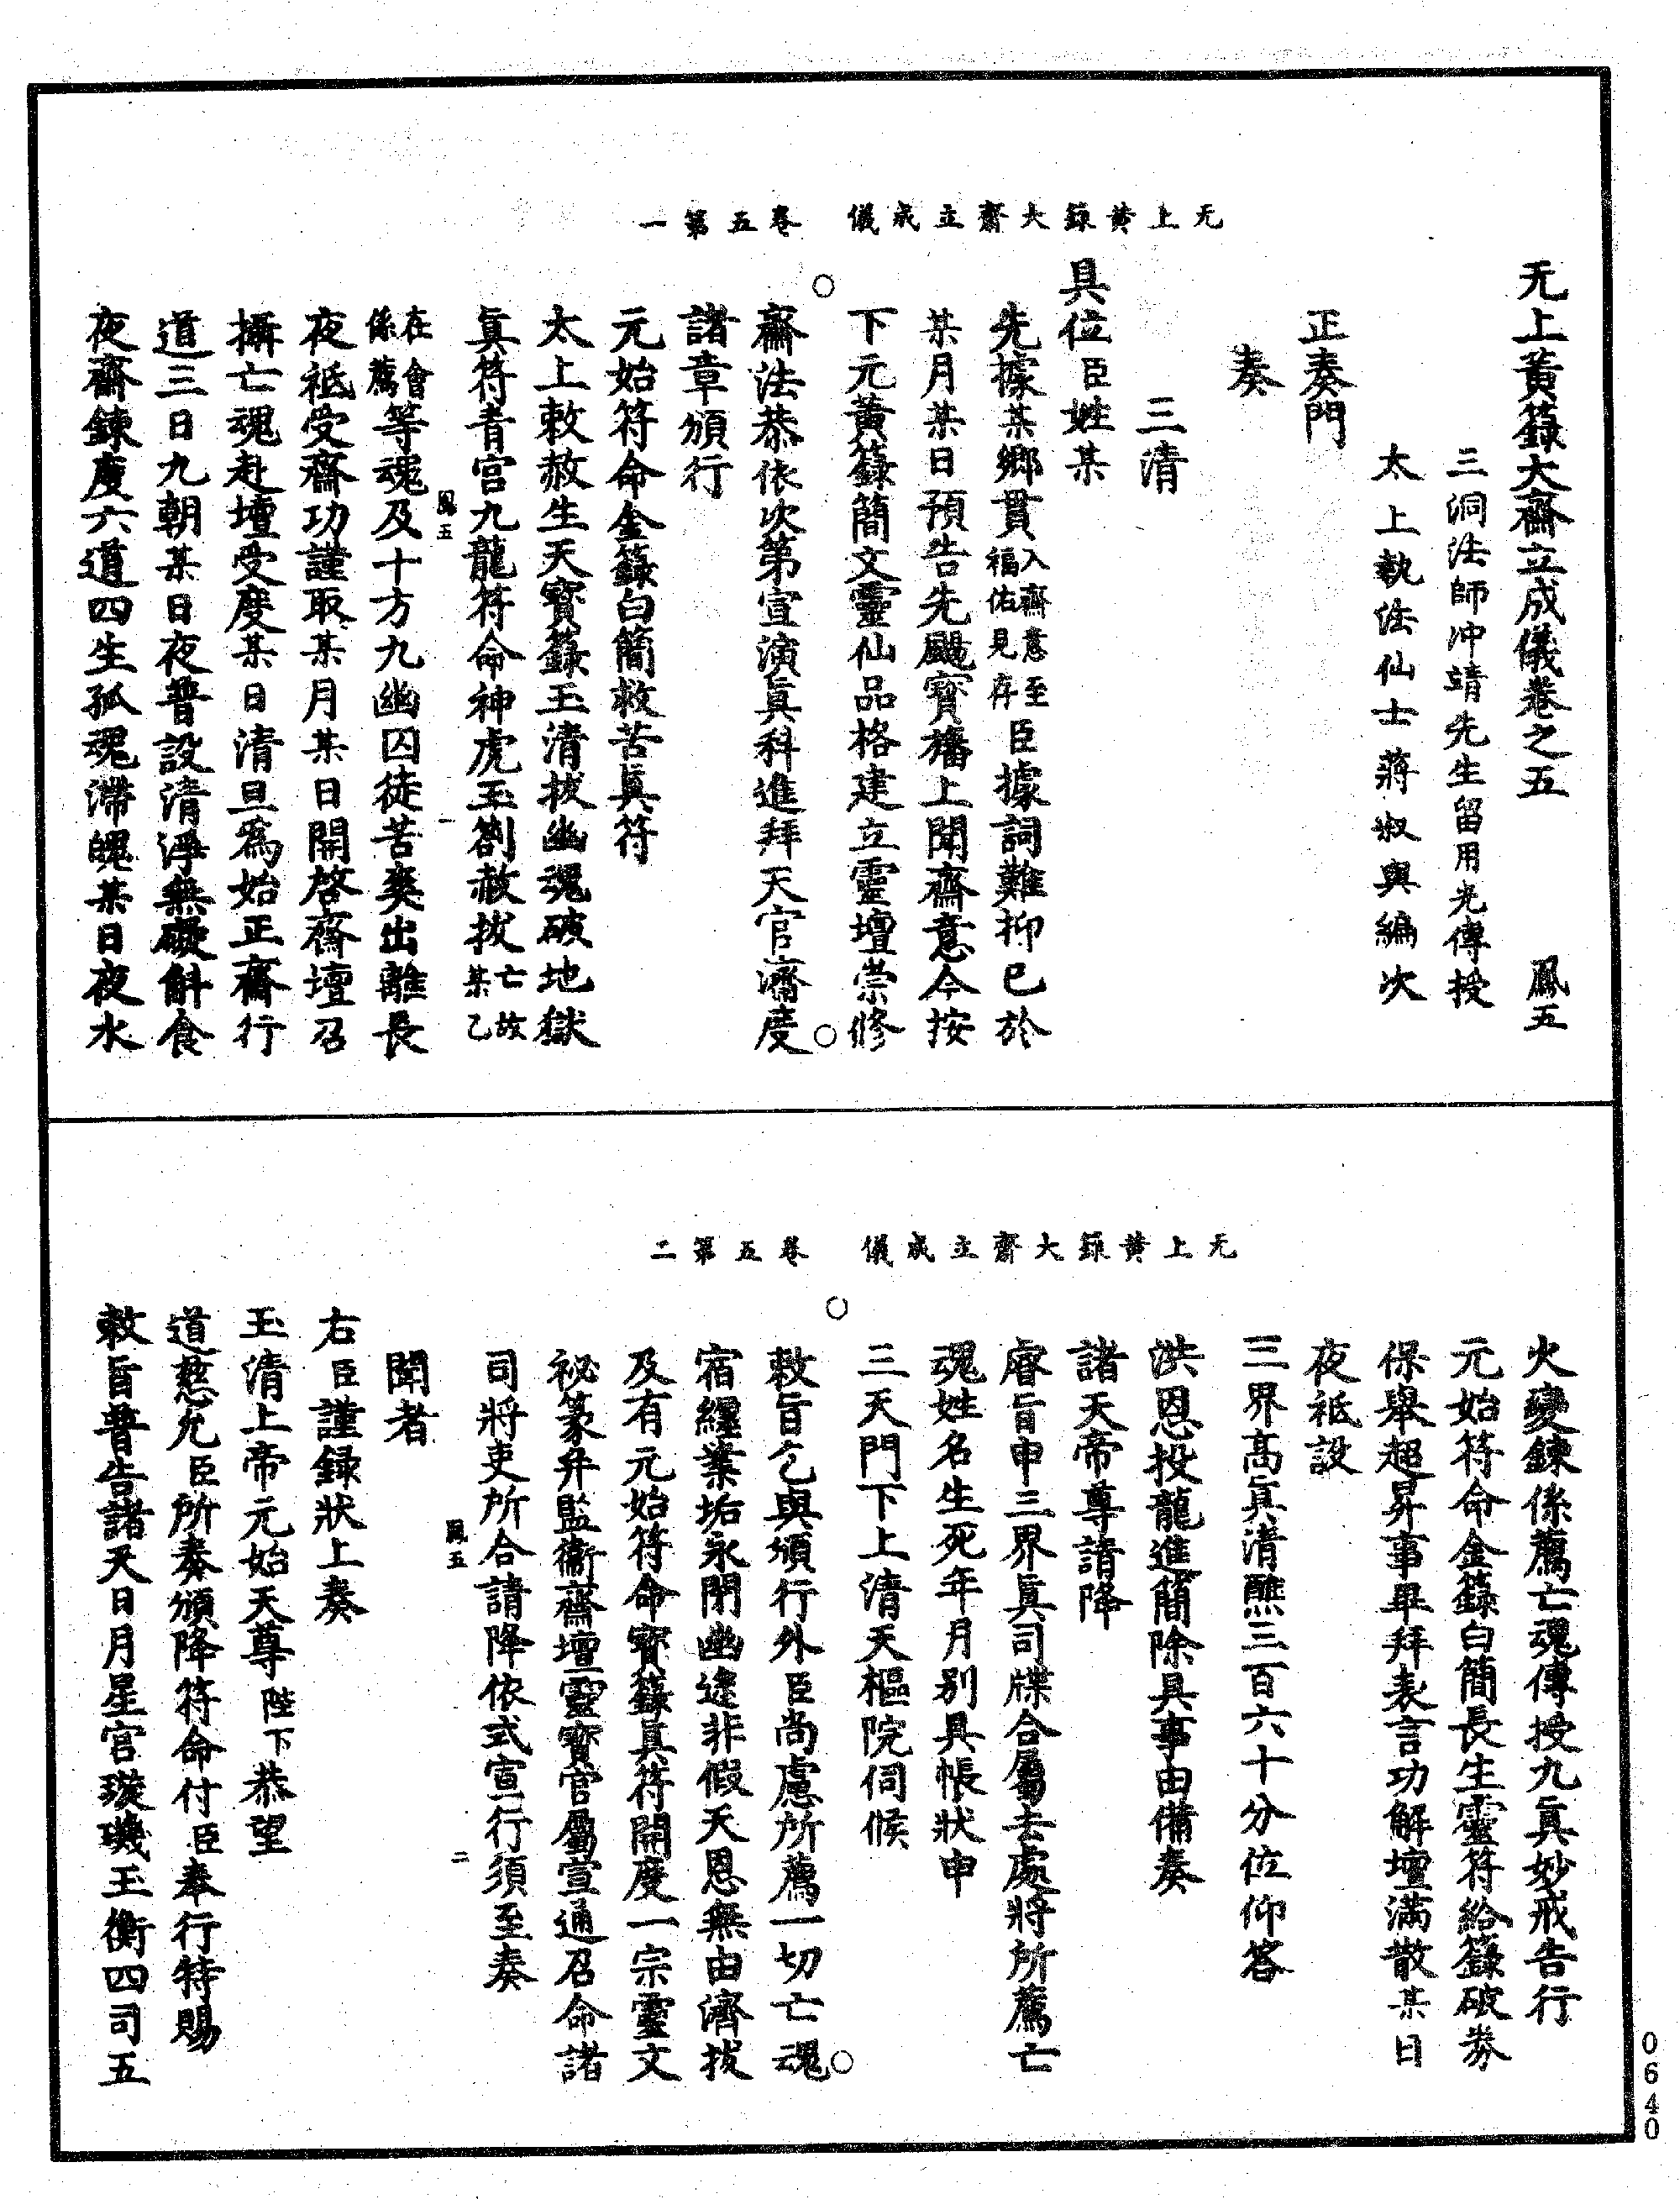 无上黃籙大齋立成儀　卷五第一
无上黃籙大齋立成儀卷之五　鳳五
三洞法師冲靖先生留用光傳授
太上執法仙士蔣叔輿編次
正奏門
奏
三清
具位臣姓某
先據某鄉貫入齋意至福佑見存臣據詞難抑已於
某月某日預告先颺寳旛上聞齋意今按
下元黃籙簡文靈仙品格建立靈壇崇修
齋法恭依次第宣演眞科進拜天官濟度
諸章頒行
元始符命金籙白簡救苦眞符
太上敕赦生天寳籙玉清拔幽魂破地獄
眞符青宮九龍符命神虎玉劄赦拔亡故某乙
在會係薦等魂及十方九幽囚徒苦爽出離長
鳳五　一
夜祗受齋功謹取某月某日開啓齋壇召
攝亡魂赴壇受度某日清旦爲始正齋行
道三日九朝某日夜普設清淨無礙斛食
夜齋鍊度六道四生孤魂滯魄某日夜水
无上黃籙大齋立成儀　卷五第二
火變鍊係薦亡魂傳授九眞妙戒告行
元始符命金籙白簡長生靈符給籙破券
保舉超昇事畢拜表言功解壇滿散某日
夜祗設
三界高眞清醮三百六十分位仰答
洪恩投龍進簡除具事由備奏
諸天帝尊請降
睿旨申三界眞司牒合屬去處將所薦亡
魂姓名生死年月別具帳狀申
三天門下上清天樞院伺候
敕旨乞與頒行外臣尚慮所薦一切亡魂
宿纏業垢永閉幽途非假天恩無由濟拔
及有元始符命寳籙眞符開度一宗靈文
祕篆弁監衞齋壇靈寳官屬宣通召命諸
司將吏所合請降依式宣行須至奏
鳳五　二
聞者
右臣謹錄狀上奏
玉清上帝元始天尊陛下恭望
道慈允臣所奏頒降符命付臣奉行特賜
敕旨普告諸天日月星宮璇璣玉衡四司五
0640